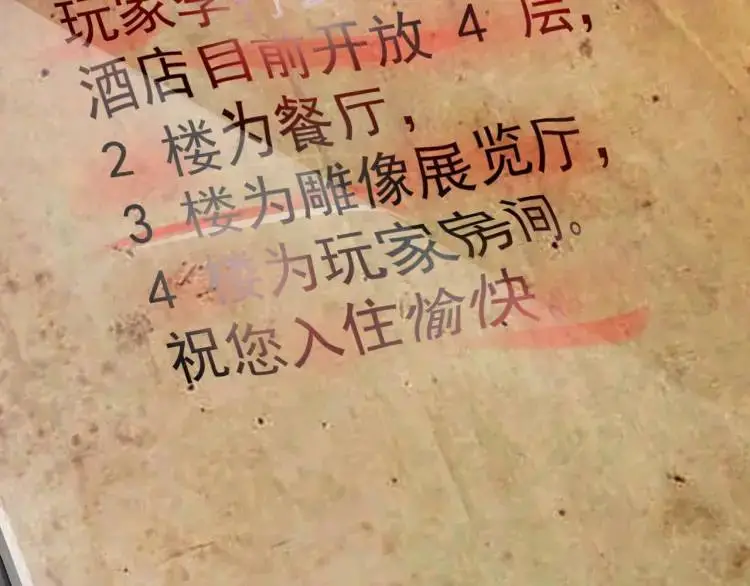 玩家李
酒店目前开放 4 层，
2 楼为餐厅，
3 楼为雕像展览厅，
4 楼为玩家房间。
祝您入住愉快